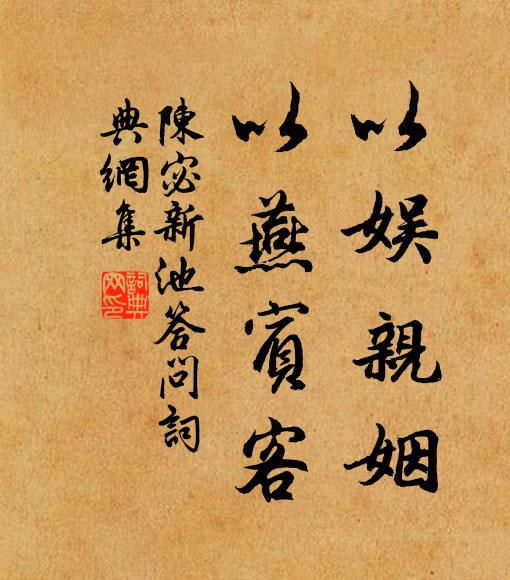 以娱親姻
以燕賓客
陳宓新池答問詞
典網集
詞典
网印